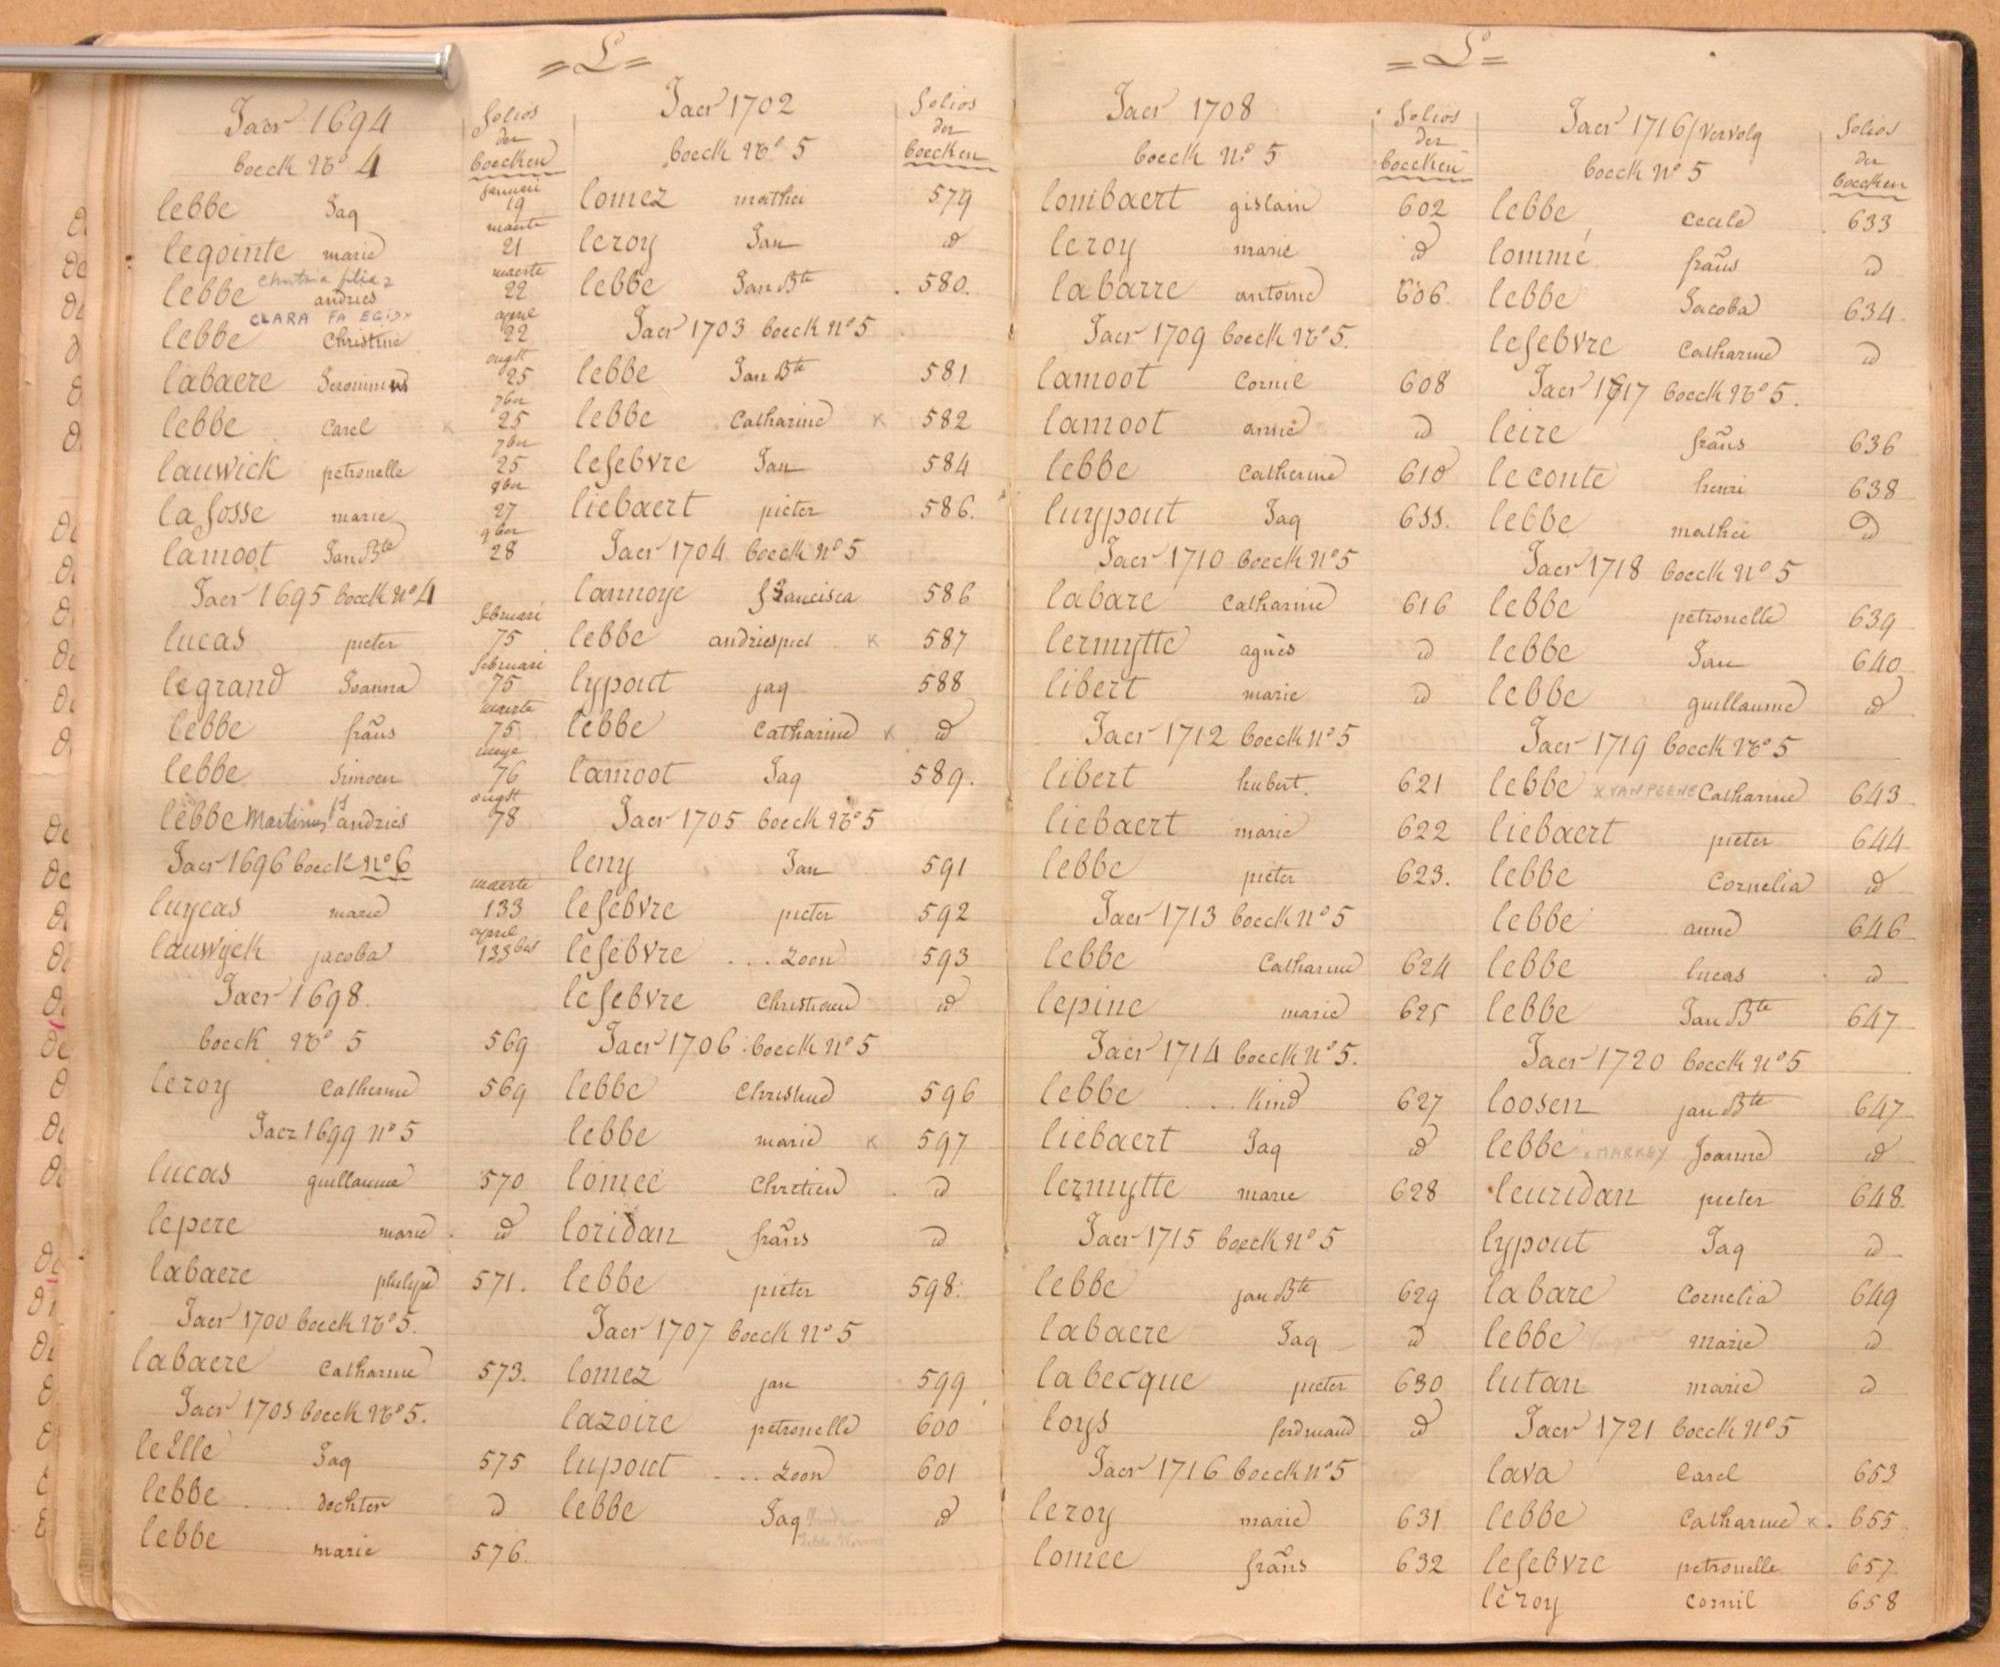 =L=
Jaer 1694
boeck No 4
folios
der
boecken
lebbe Jaq januari 19
legointe marie maerte 21
lebbe andries maerte 22
CLARA FA EGIDY
lebbe Christine april 22
labaere Jeronimus ougst 25
lebbe Carel x 7ber 25
lauwick petronelle 7ber 25
lafosse marie 8ber 27
lamoot Jan Bte 9ber 28
Jaer 1695 boeck No 4
lucas pieter februari 75
legrand Joanna februari 75
lebbe frans maerte 75
lebbe Simoen meye 76
lebbe Martinus andries ougst 78
Jaer 1696 boeck no 6
luycas marie maerte 133
lauwyck jacoba april 133 bis
Jaer 1698
boeck No 5 569
leroy Catherine 569
Jaer 1699 no 5
lucas guillaume 570
lepere marie id
labaere philype 571.
Jaer 1700 boeck No 5.
labaere Catharine 573.
Jaer 1701 boeck No 5.
leElle Jaq 575
lebbe .... dochter id
lebbe marie 576.
Jaer 1702
boeck No 5
folios
der
boecken
lomez mathei 579
leroy Jan id
lebbe Jan Bte 580.
Jaer 1703 boeck No 5
lebbe Jan Bte 581
lebbe Catharine x 582
lefebvre Jan 584
liebaert pieter 586.
Jaer 1704 boeck No 5
lannoye francisca 586
lebbe andries x 587
lypout jaq 588
lebbe Catharine x id
lamoot Jaq 589.
Jaer 1705 boeck No 5
leny Jan 591
lefebvre pieter 592
lefebvre ... zoon 593
lefebvre Christiaen id
Jaer 1706 boeck No 5
lebbe Christine 596
lebbe marie x 597
lomee Chretien id
loridan frans id
lebbe pieter 598.
Jaer 1707 boeck No 5
lomez jan 599
lazoire petronelle 600
lupout .... zoon 601
lebbe Jaq id
=L=
Jaer 1708
boeck No 5
folios
der
boecken
lombaert gislain 602
leroy marie id
labarre antoine 606.
Jaer 1709 boeck No 5.
lamoot Cornil 608
lamoot anne id
lebbe Catherine 610
luypout Jaq 611.
Jaer 1710 boeck No 5
labare Catharine 616
lermytte agnès id
libert marie id
Jaer 1712 boeck No 5
libert hubert. 621
liebaert marie 622
lebbe pieter 623.
Jaer 1713 boeck No 5
lebbe Catharine 624
lepine marie 625
Jaer 1714 boeck No 5.
lebbe .... Kind 627
liebaert Jaq id
lermytte marie 628
Jaer 1715 boeck No 5
lebbe jan Bte 629
labaere Jaq id
labecque pieter 630
loys ferdinand id
Jaer 1716 boeck No 5
leroy marie 631
lomee frans 632
Jaer 1716/vervolg
boeck No 5
folios
der
boecken
lebbe Cecile 633
lommé frans id
lebbe Jacoba 634
lefebvre Catharine id
Jaer 1717 boeck No 5.
leire frans 636
leconte henri 638
lebbe mathei id
Jaer 1718 boeck No 5
lebbe petronelle 639
lebbe Jan 640
lebbe guillaume id
Jaer 1719 boeck No 5
lebbe x VAN PEENE Catharine 643
liebaert pieter 644
lebbe Cornelia id
lebbe anne 646
lebbe lucas id
lebbe Jan Bte 647
Jaer 1720 boeck No 5
loosen jan Bte 647
lebbe x MARKEY Joanne id
leuridan pieter 648
lypout Jaq id
labare Cornelia 649
lebbe marie id
lutan marie id
Jaer 1721 boeck No 5
lava Carel 653
lebbe Catharine x 655
lefebvre petronelle 657
leroy Cornil 658